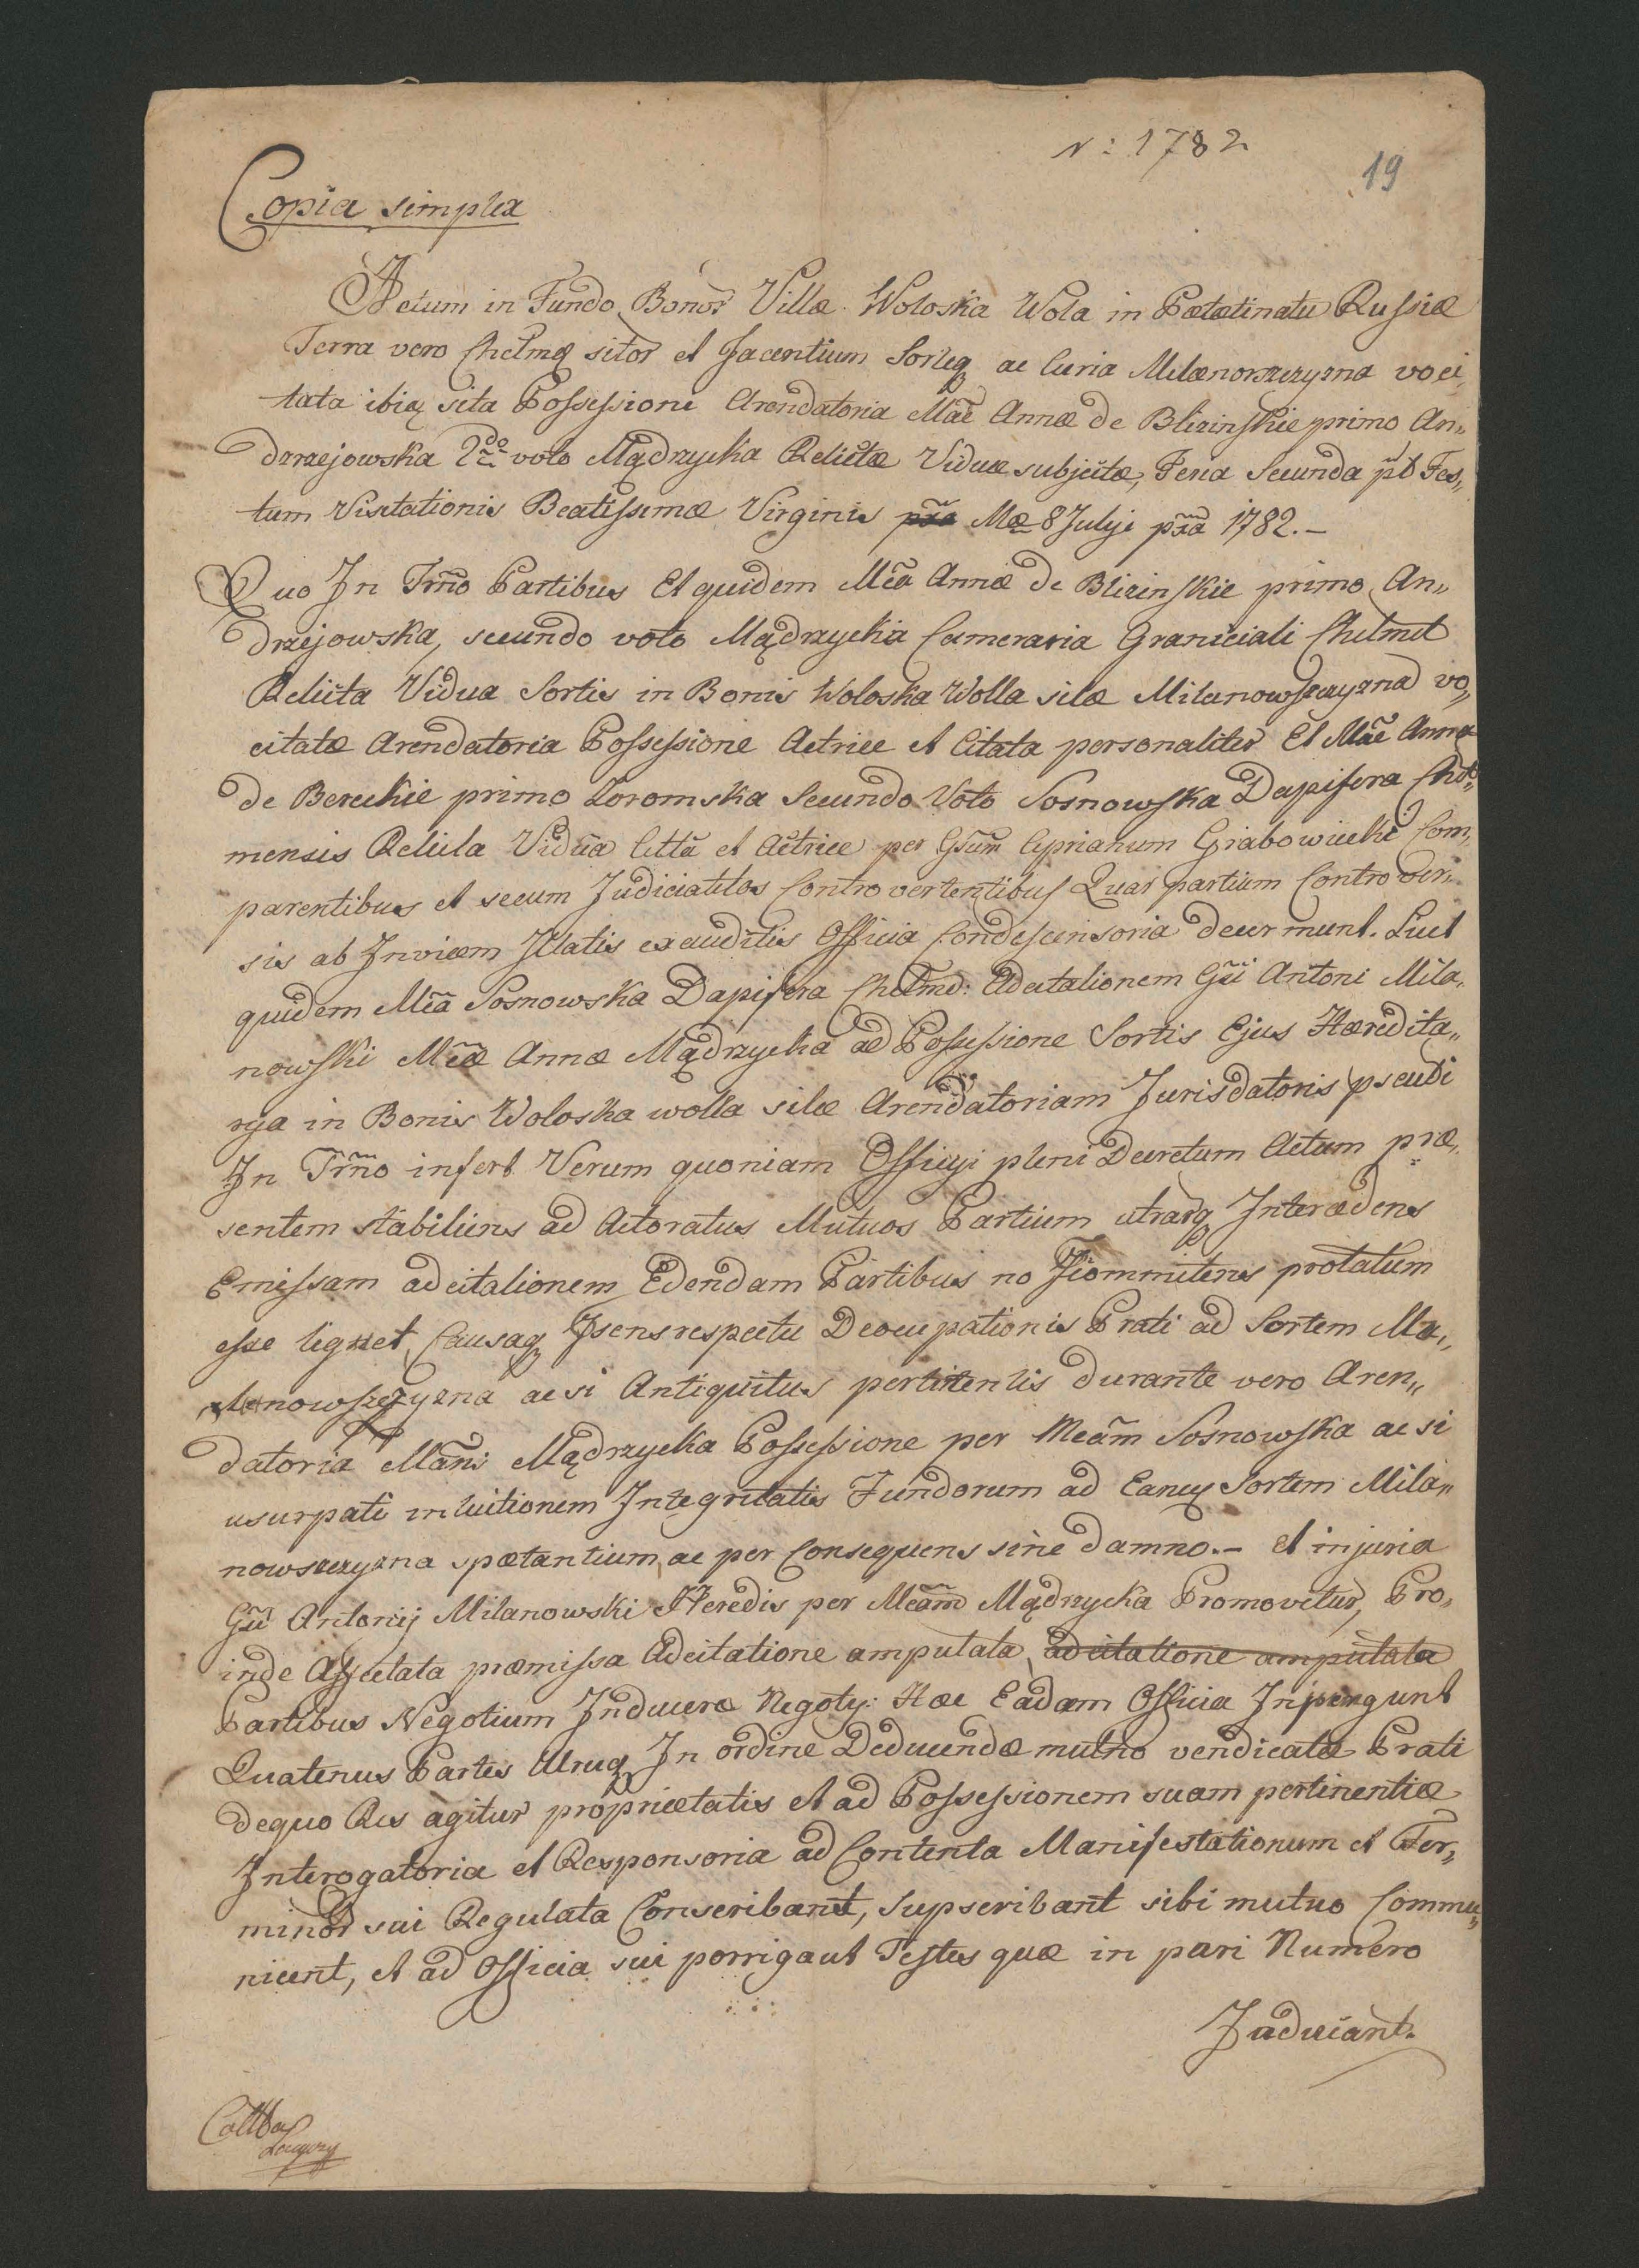 N: 1782
19
Copia simplex
Actum in Fundo Bonor̃ Villæ Woloska Wola in Palatinatu Russiæ
Terra vero Chelmeñ sitor̃ et Jacentium Sorteq ac Curia Milanowszczyzna voci,
tata ibiq sita Possessioni Arendatoria Mãe Annæ de Blizinskie primo An„
drzejowska 2do voto Mądrzycka Relictæ Viduæ subjectæ, Feria Secunda pt Fes„
tum Visitationis Beatissimæ Virginis pña Mæ 8 Julij pña 1782.–
Quo In Trno Partibus Et quidem Mea Annæ de Blizinskie primo An„
drzejowska, secundo voto Mądrzycka Cameraria Graniciali Chelmen
Relicta Vidua Sortis in Bonis Woloska Wolla sitæ Milanowszczyzna vo„
citatæ Arendatoria Possessione Actrice et Citata personaliter Et Mãe Anna
de Bereckie primo Loromska Secundo Voto Sosnowska Dapifera Chel„
mensis Relicta Vidua Citta et Actrice per Gsum Cyprianum Grabowiecki Com„
parentibus et secum Judicialiter Controvertentibus Quar̃ partium Controver„
sis ab Invicem Illatis exauditis Officia Condescensoria decernunt. Licet
quidem Mea Sosnowska Dapifera Chelmen: Adcitationem Gsi Antoni Mila„
nowski Meæ Annæ Mądrzycka ad Possessione Sortis Ejus Hæredita„
rya in Bonis Woloska wolla sitæ Arendatoriam Jurisdatoris pseudi
In Trno infert Verum quoniam Officyi pleni Decretum Actum præ„
sentem stabiliens ad Actoratus Mutuos Partium utrarq Intercedens
Emissam adcitationem Edendam Partibus no Icommitens prolatum
esse lignet Causaq Isens respectu Deocupationis Prati ad Sortem Mi„
lanowszczyzna ac si Antiquitus pertinentis durante vero Aren„
datoria Mans Mądrzycka Possessione per Meam Sosnowska ac si
usurpati intuitionem Integritatis Fundorum ad Eanq Sortem Mila„
nowszczyzna spectantium ac per Consequens sine damno.– et injuria
Gsi Antonij Milanowski Heredis per Meam Mądrzycka Promovetur, Pro„
inde Affectata præmissa Adcitatione amputata adcitatione amputata
Partibus Negotium Inducere Negoty: Hac Eadem Officia Injungunt
Quatenus Partes Utruq In ordine Deducendæ mutuo vendicatæ Prati
dequo Res agitur proprietatis et ad Possessionem suam pertinentiæ
Interogatoria et Responsoria ad Contenta Manifestationum et Ter„
minor̃ sui Regulata Conscribant, Supscribant sibi mutuo Commu„
nicent, et ad Officia sui porrigaut Testes quæ in pari Numero
Inducant.